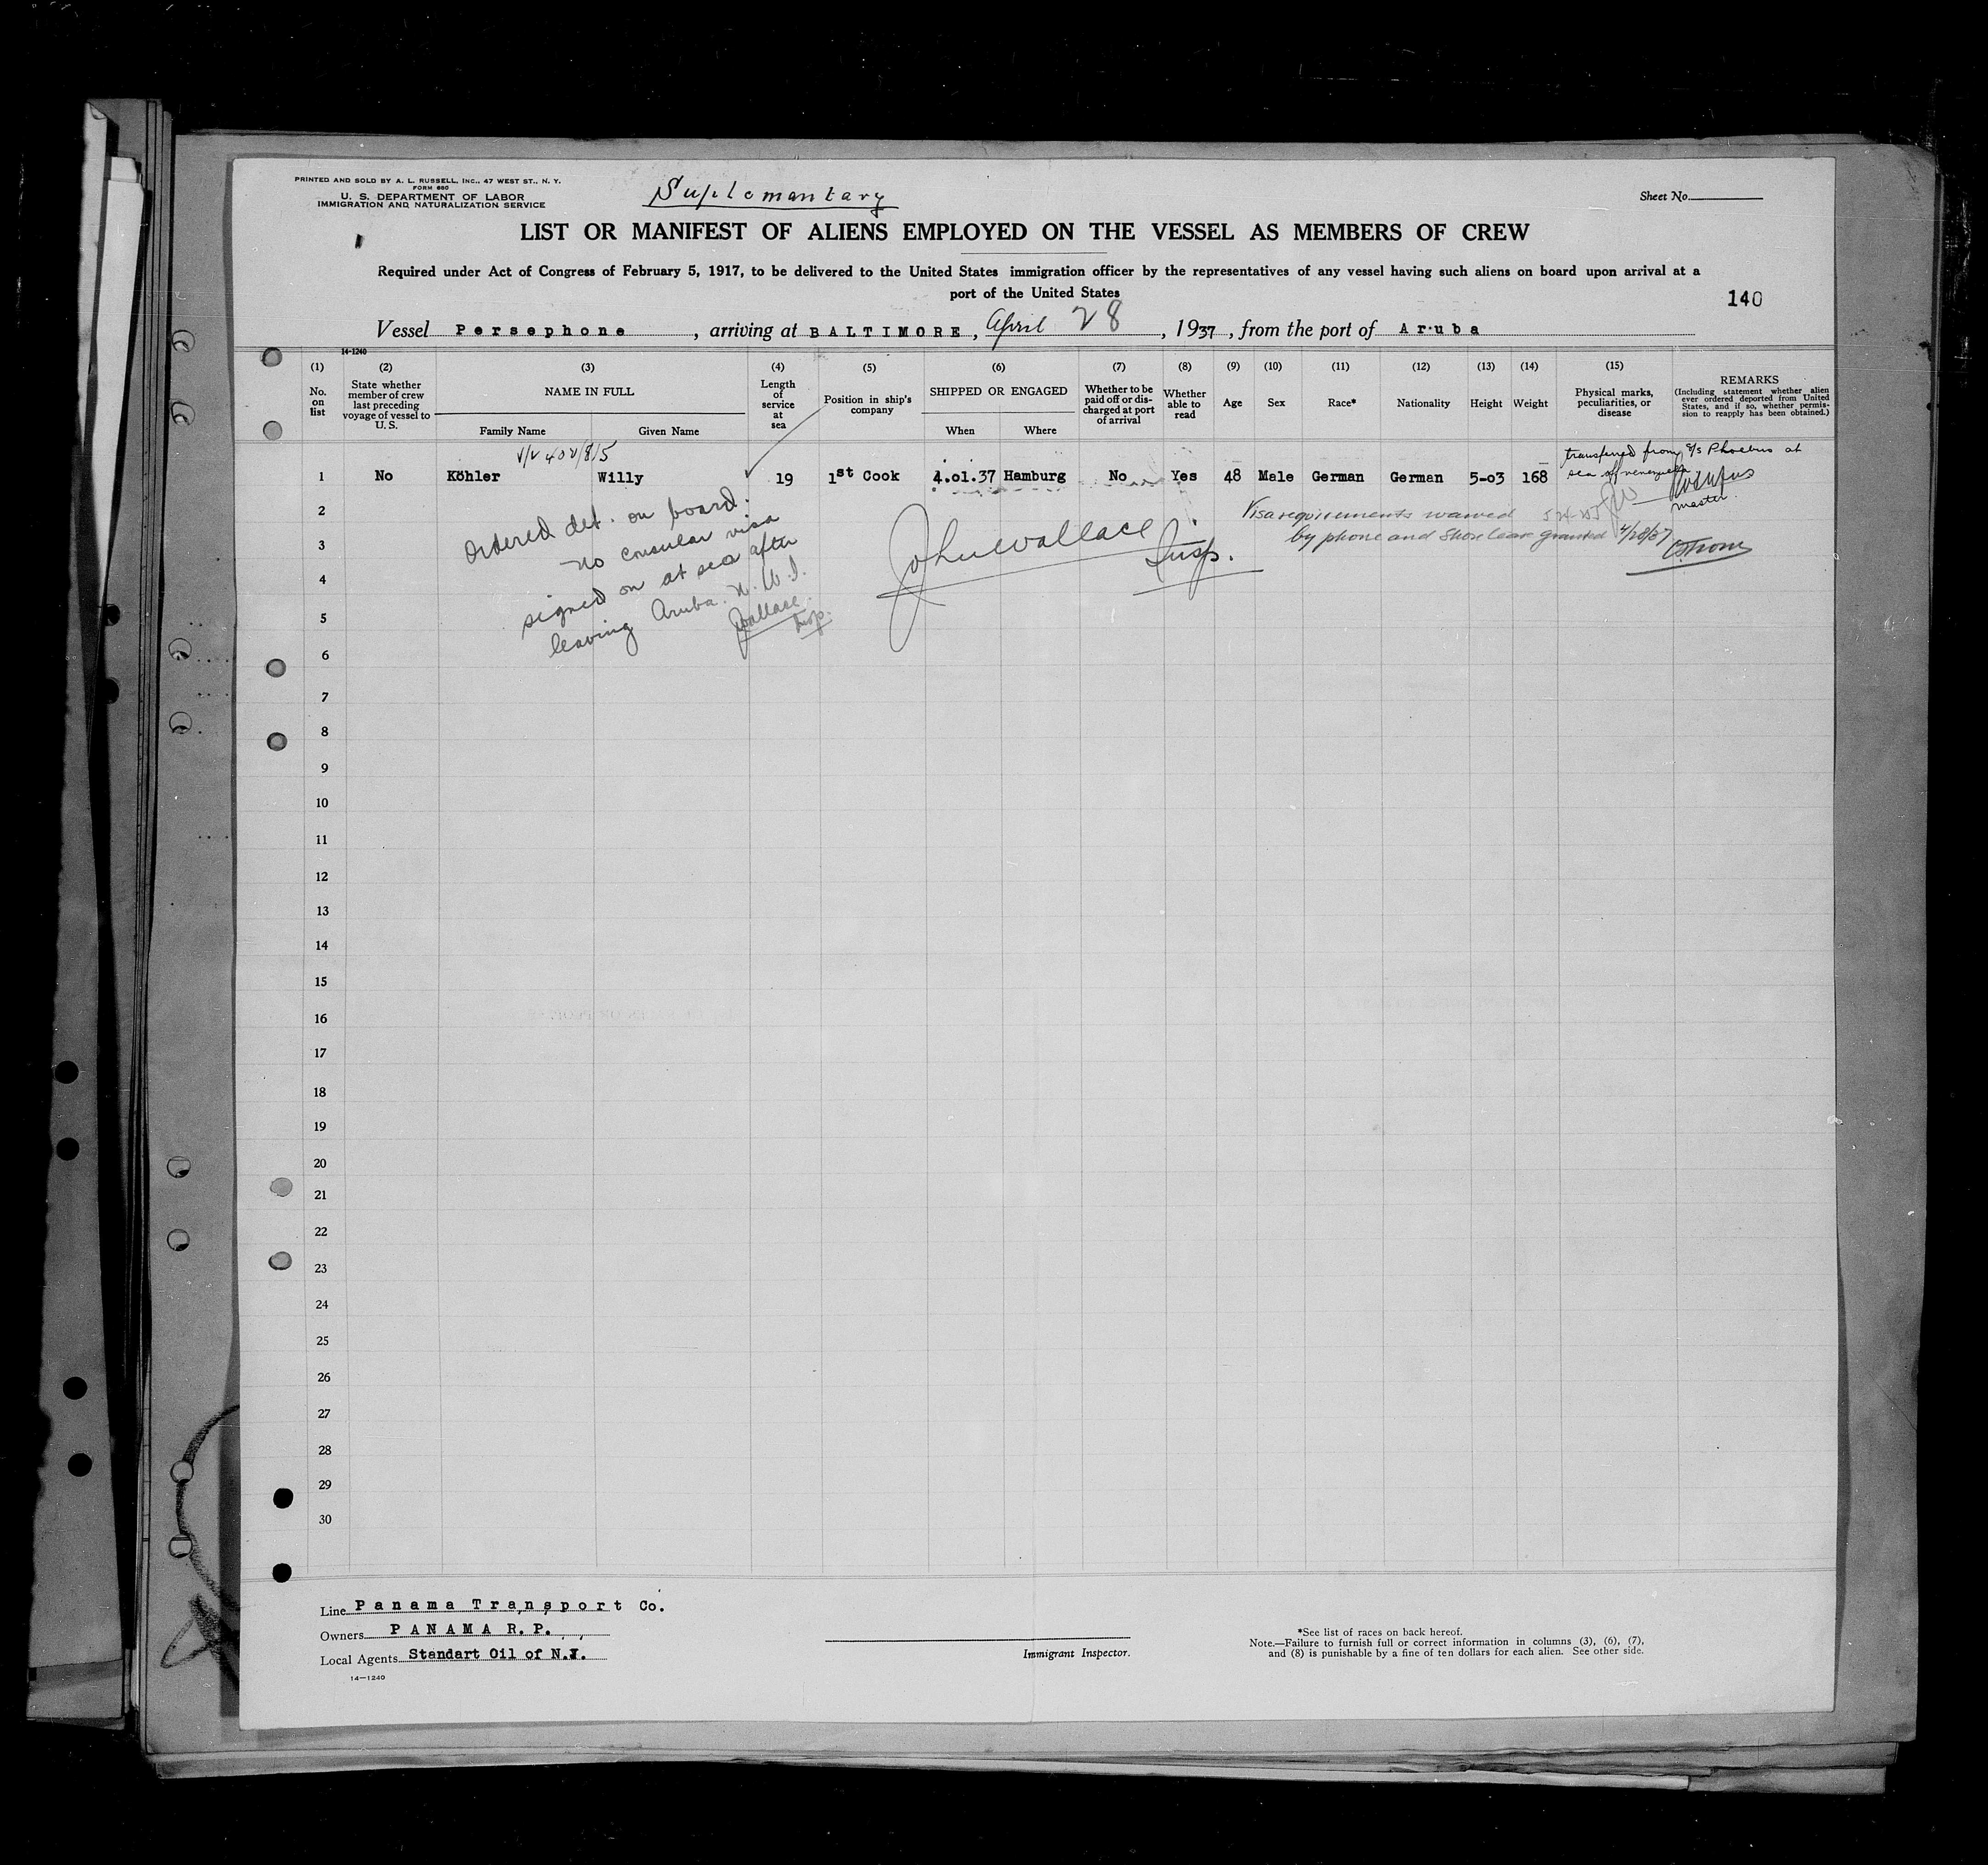 PRINTED AND SOLD BY A. L. RUSSELL, INC., 47 WEST ST., N. Y.
FORM 680
U. S. DEPARTMENT OF LABOR
IMMIGRATION AND NATURALIZATION SERVICE
Suplementary
Sheet No.
LIST OR MANIFEST OF ALIENS EMPLOYED ON THE VESSEL AS MEMBERS OF CREW
Required under Act of Congress of February 5, 1917, to be delivered to the United States immigration officer by the representatives of any vessel having such aliens on board upon arrival at a
port of the United States
140
Vessel Persephone, arriving at BALTIMORE, April 28, 1937, from the port of Aruba
14-1240
(1) (2) (3) (4) (5) (6) (7) (8) (9) (10) (11) (12) (13) (14) (15)
No. on list
State whether member of crew last preceding voyage of vessel to U. S.
NAME IN FULL
Family Name Given Name
Length of service at sea
Position in ship's company
SHIPPED OR ENGAGED
When Where
Whether to be paid off or discharged at port of arrival
Whether able to read
Age
Sex
Race*
Nationality
Height
Weight
Physical marks, peculiarities, or disease
REMARKS
(Including statement whether alien ever ordered deported from United States, and if so, whether permission to reapply has been obtained.)
transferred from s/s Phoebus at
1 No Köhler Willy 19 1st Cook 4.01.37 Hamburg No Yes 48 Male German German 5-03 168 sea of venezuela
master.
2
Ordered det. on board.
no consular visa
signed on at sea after
leaving Aruba. N.W.I.
Wallace
Insp.
John Wallace
Insp.
Visa requirements waived
by phone and shore leave granted 4/28/37
3
4
5
6
7
8
9
10
11
12
13
14
15
16
17
18
19
20
21
22
23
24
25
26
27
28
29
30
Line Panama Transport Co.
Owners PANAMA R. P.
Local Agents Standart Oil of N.J.
14-1240
Immigrant Inspector.
*See list of races on back hereof.
Note.—Failure to furnish full or correct information in columns (3), (6), (7),
and (8) is punishable by a fine of ten dollars for each alien. See other side.